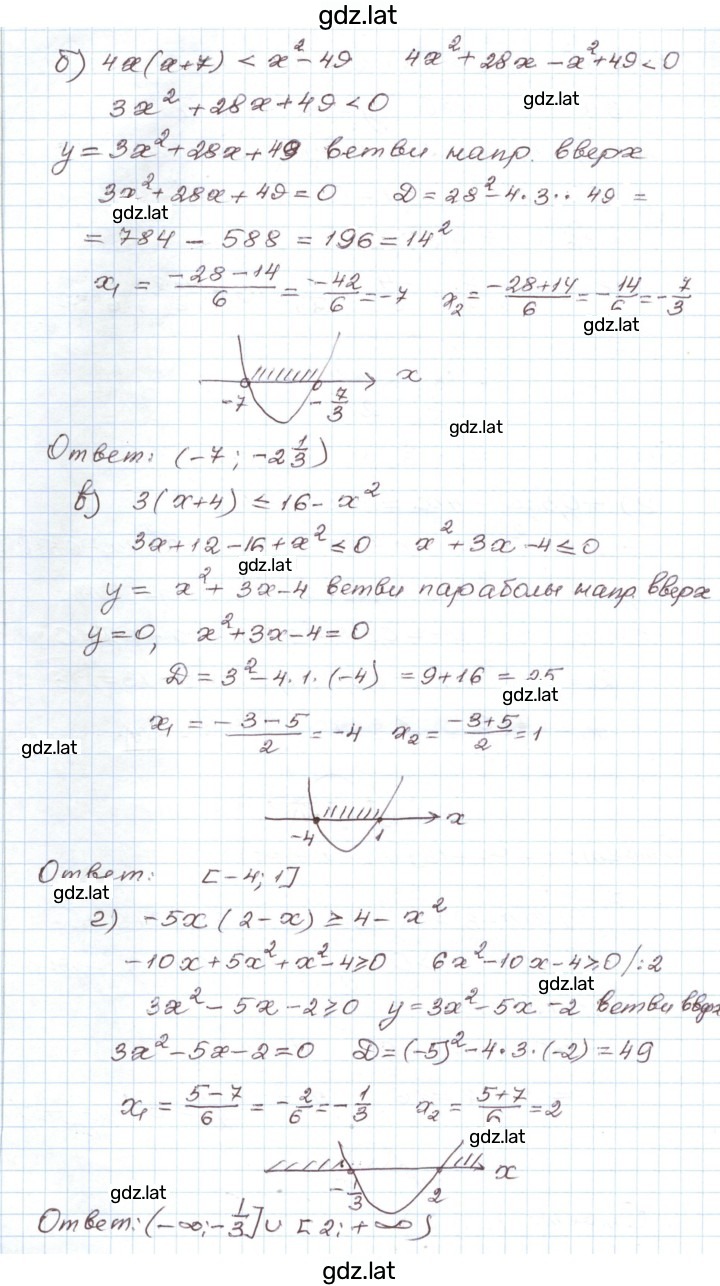 gdz.lat
б) 4x(x+7) < x²-49   4x²+28x-x²+49<0
3x²+28x+49<0
gdz.lat
y=3x²+28x+49 ветви напр. вверх
3x²+28x+49=0   D=28²-4·3·· 49 =
gdz.lat
= 784 - 588 = 196 = 14²
x₁ = (-28-14)/6 = -42/6 = -7   x₂ = (-28+14)/6 = -14/6 = -7/3
gdz.lat
x
-7   -7/3
gdz.lat
Ответ: (-7; -2 1/3)
в) 3(x+4) ≤ 16-x²
3x+12-16+x²≤0   x²+3x-4≤0
gdz.lat
y = x²+3x-4 ветви параболы напр. вверх
y=0,   x²+3x-4=0
D = 3²-4·1·(-4) = 9+16 = 25
gdz.lat
x₁ = (-3-5)/2 = -4   x₂ = (-3+5)/2 = 1
gdz.lat
x
-4   1
Ответ: [-4; 1]
gdz.lat
г) -5x(2-x) ≥ 4-x²
-10x+5x²+x²-4≥0   6x²-10x-4≥0/:2
gdz.lat
3x²-5x-2≥0   y=3x²-5x-2 ветви вверх
3x²-5x-2=0   D=(-5)²-4·3·(-2)=49
x₁ = (5-7)/6 = -2/6 = -1/3   x₂ = (5+7)/6 = 2
gdz.lat
x
-1/3   2
gdz.lat
Ответ: (-∞; -1/3]∪[2; +∞)
gdz.lat